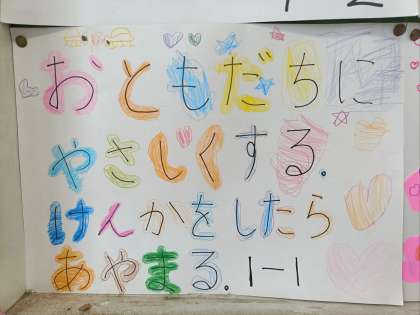 おともだちに
やさしくする.
けんかをしたら
あやまる. 1-1